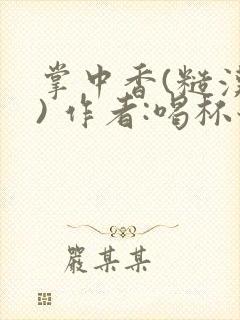 掌中香(糙汉
) 作者:喝杯
嚴某某